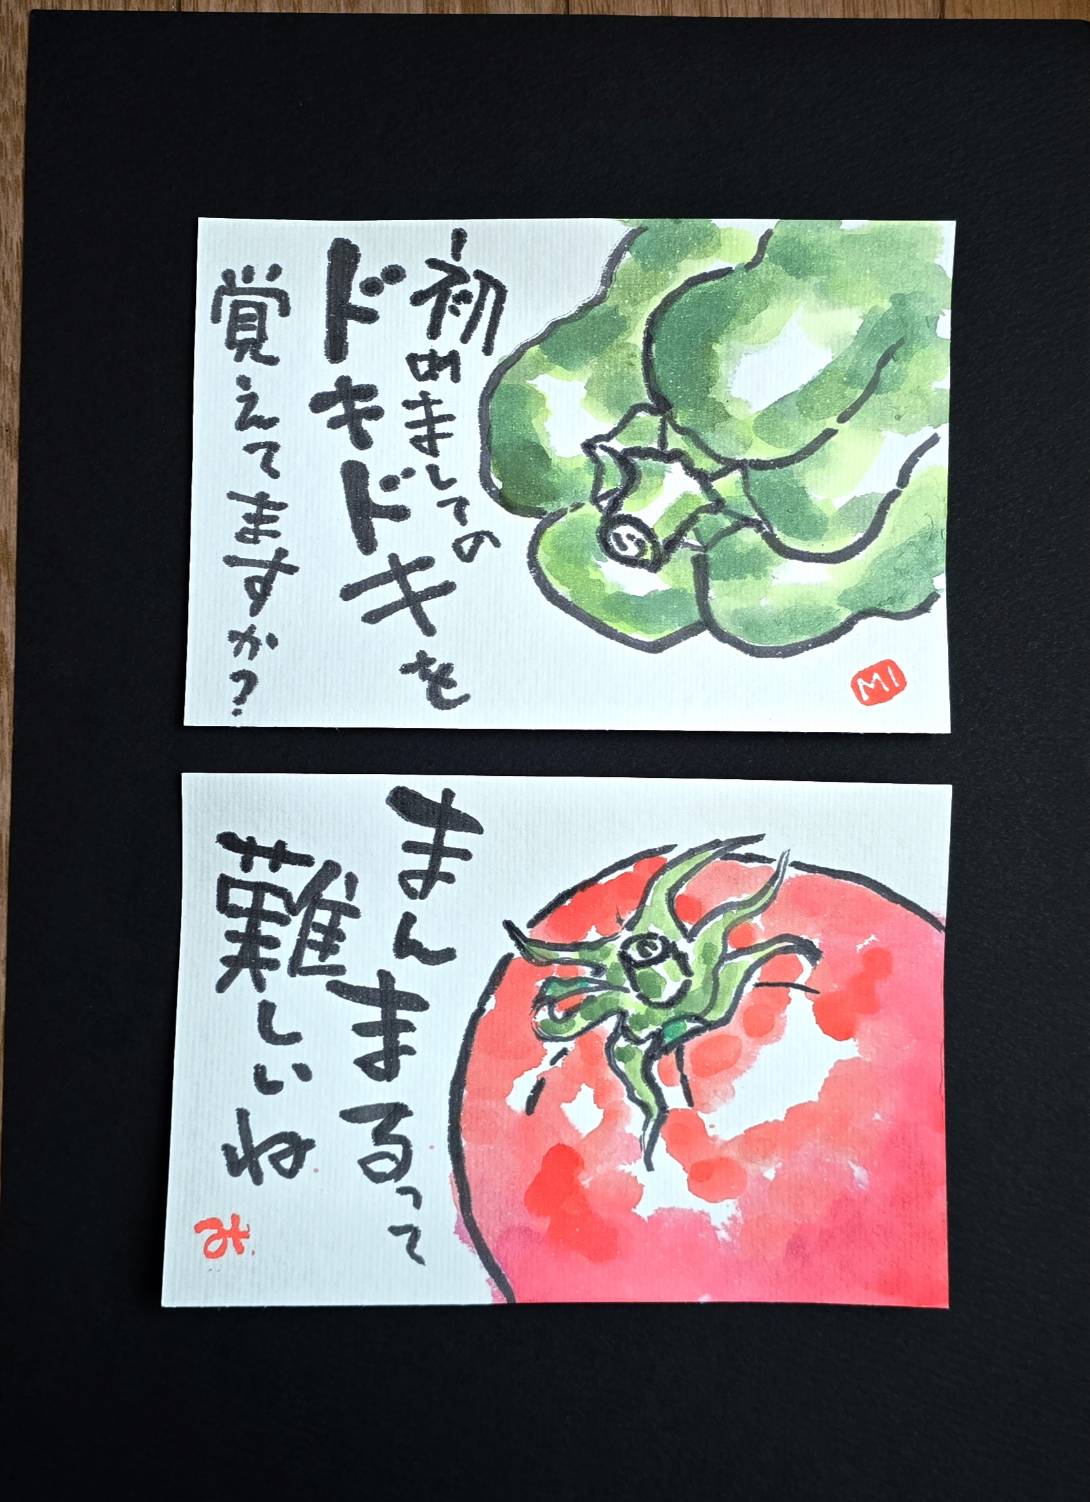 初めましての
ドキドキを
覚えてますか?
MI
まんまるって
難しいね
み